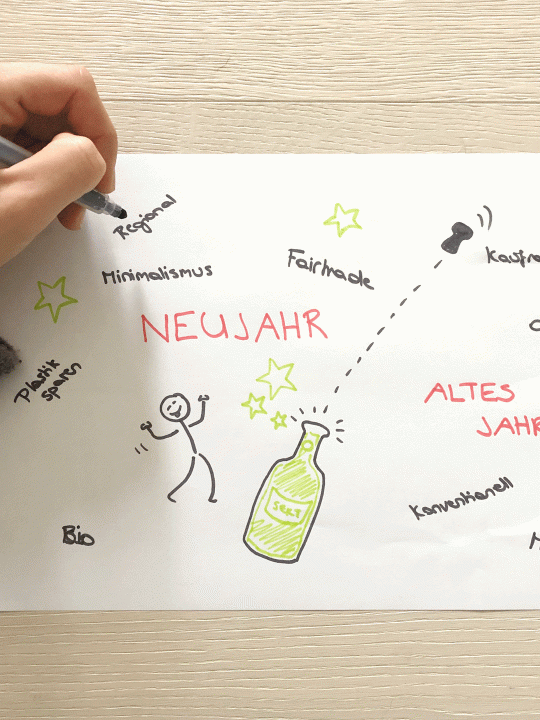 Regional
Minimalismus
Fairtrade
NEUJAHR
Plastik
sparen
ALTES
JAHR
SEKT
Konventionell
Bio